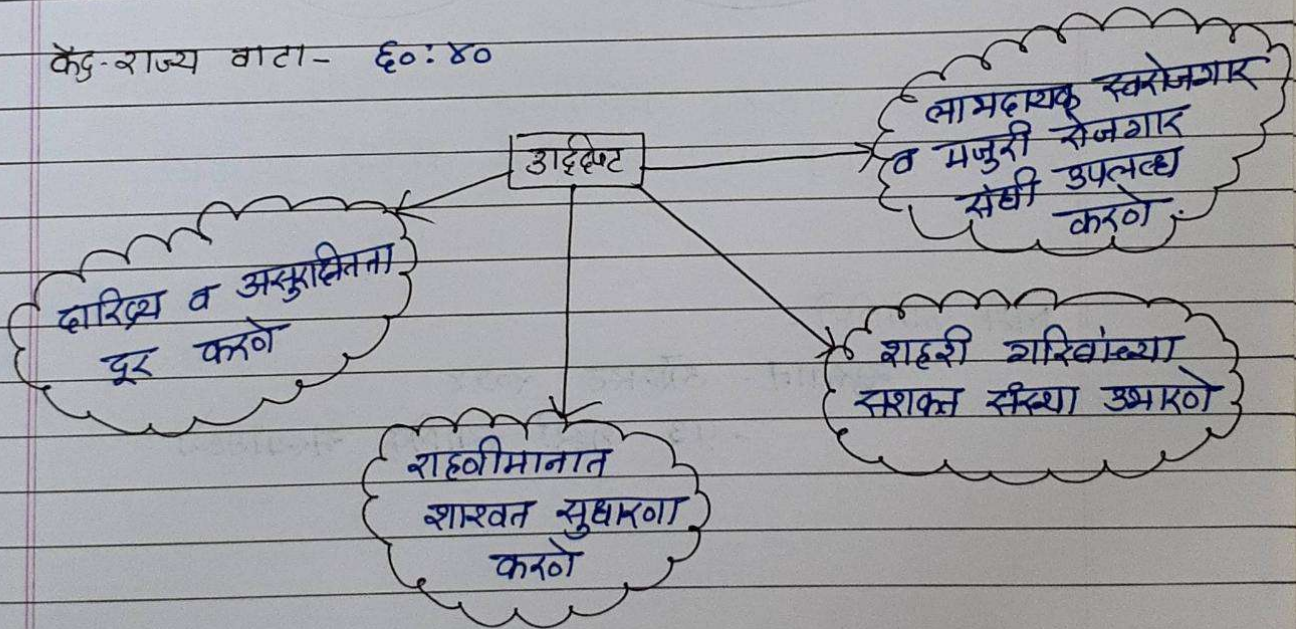 केंद्र-राज्य वाटा- ६०:४०
उद्दिष्ट
लाभदायक स्वरोजगार
व मजुरी रोजगार
संधी उपलब्ध
करणे.
दारिद्र्य व असुरक्षितता
दूर करणे
शहरी गरिबांच्या
सशक्त संस्था उभारणे
राहणीमानात
शाश्वत सुधारणा
करणे